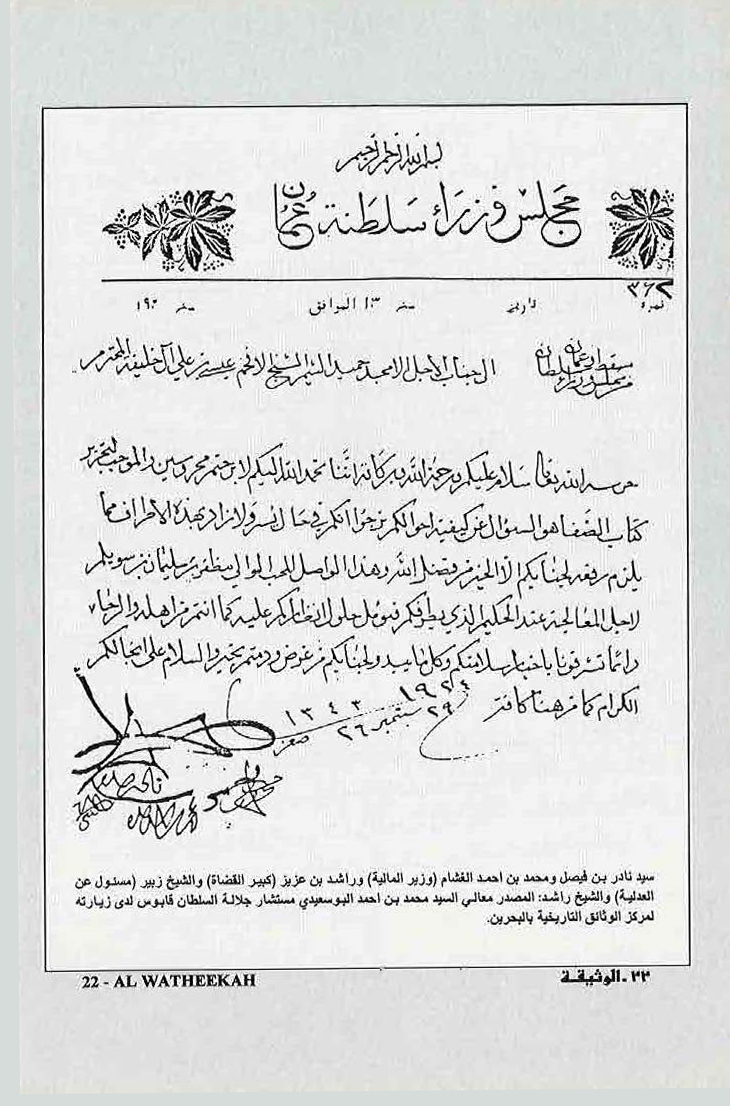 بسم الله الرحمن الرحيم
مجلس وزراء سلطنة عمان
٣٦٢
نمرة تاريخ سنه ١٣ الموافق سنه ١٩٢
من مجلس وزراء سلطان مسقط وعمان
الى جناب الاجل الامجد حميد الشيم الشيخ الافخم عيسى بن علي آل خليفة المحترم
حرسه الله تعالى سلام عليكم ورحمة الله وبركاته اننا نحمد الله اليكم لا برحتم محروسين والموجب لتحرير
كتاب الصفا هو السؤال عن كيفية احوالكم نرجوا انكم في حال السرور ولا نزاد بهذه الاطراف مما
يلزم رفعه لجنابكم الا الخير من فضل الله وهذا الواصل اليكم المحب الموالي مظفر بن سليمان بن سويلم
لاجل المعالجة عند الحكيم الذي بطرفكم فنؤمل حلول انظاركم عليه كما انتم من اهله والرجاء
دائما تشرفونا باخبار سلامتكم وكل ما يبد ولجنابكم من غرض ودمتم بخير والسلام على انجالكم
الكرام كما من هنا كافة
١٩٢٤
٢٩ سبتمبر ٢٦ صفر ١٣٤٣
سيد نادر بن فيصل ومحمد بن احمد الغشام (وزير المالية) وراشد بن عزيز (كبير القضاة) والشيخ زبير (مسئول عن
العدلية) والشيخ راشد: المصدر معالي السيد محمد بن احمد البوسعيدي مستشار جلالة السلطان قابوس لدى زيارته
لمركز الوثائق التاريخية بالبحرين.
22 - AL WATHEEKAH
٢٣ - الوثيقة